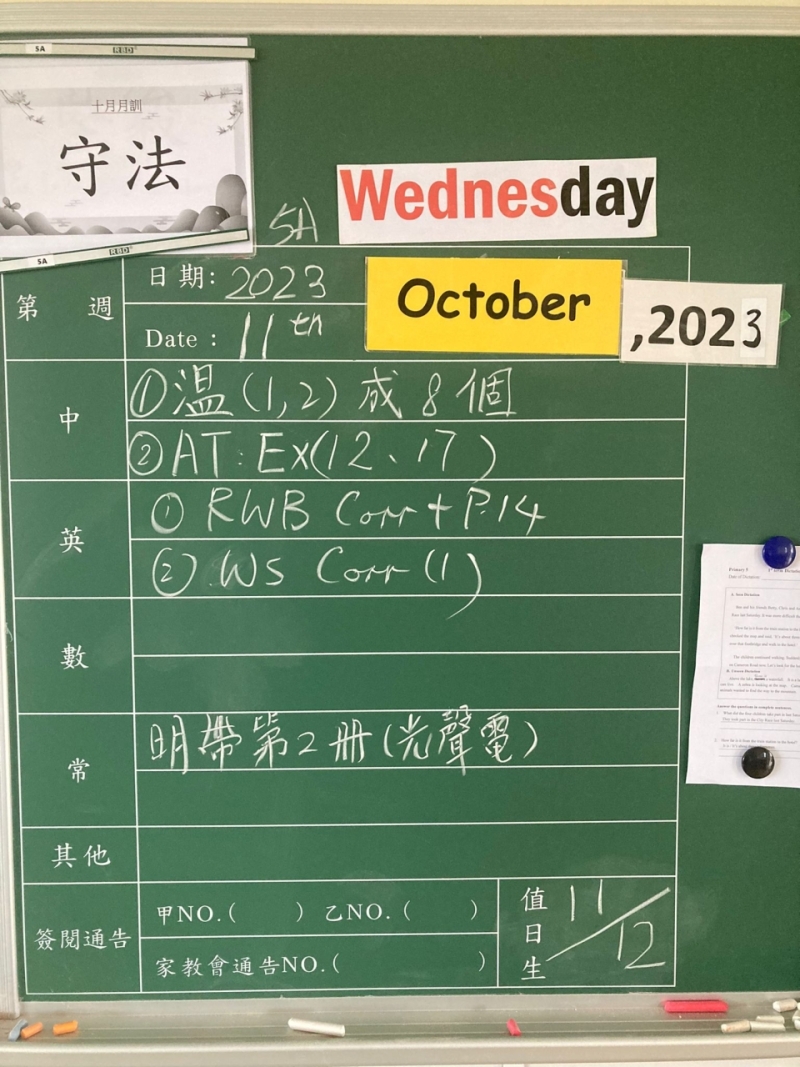 5A RBD
十月月訓
守法
5A RBD
5A
Wednesday
第 週
日期: 2023
October
,2023
Date : 11th
中
①溫(1,2)成8個
②AT:Ex(12、17)
英
① RWB Corr + P.14
② WS Corr (1)
數
常
明帶第2冊(光聲電)
其他
簽閱通告
甲NO.( ) 乙NO.( )
家教會通告NO.( )
值日生
11/12